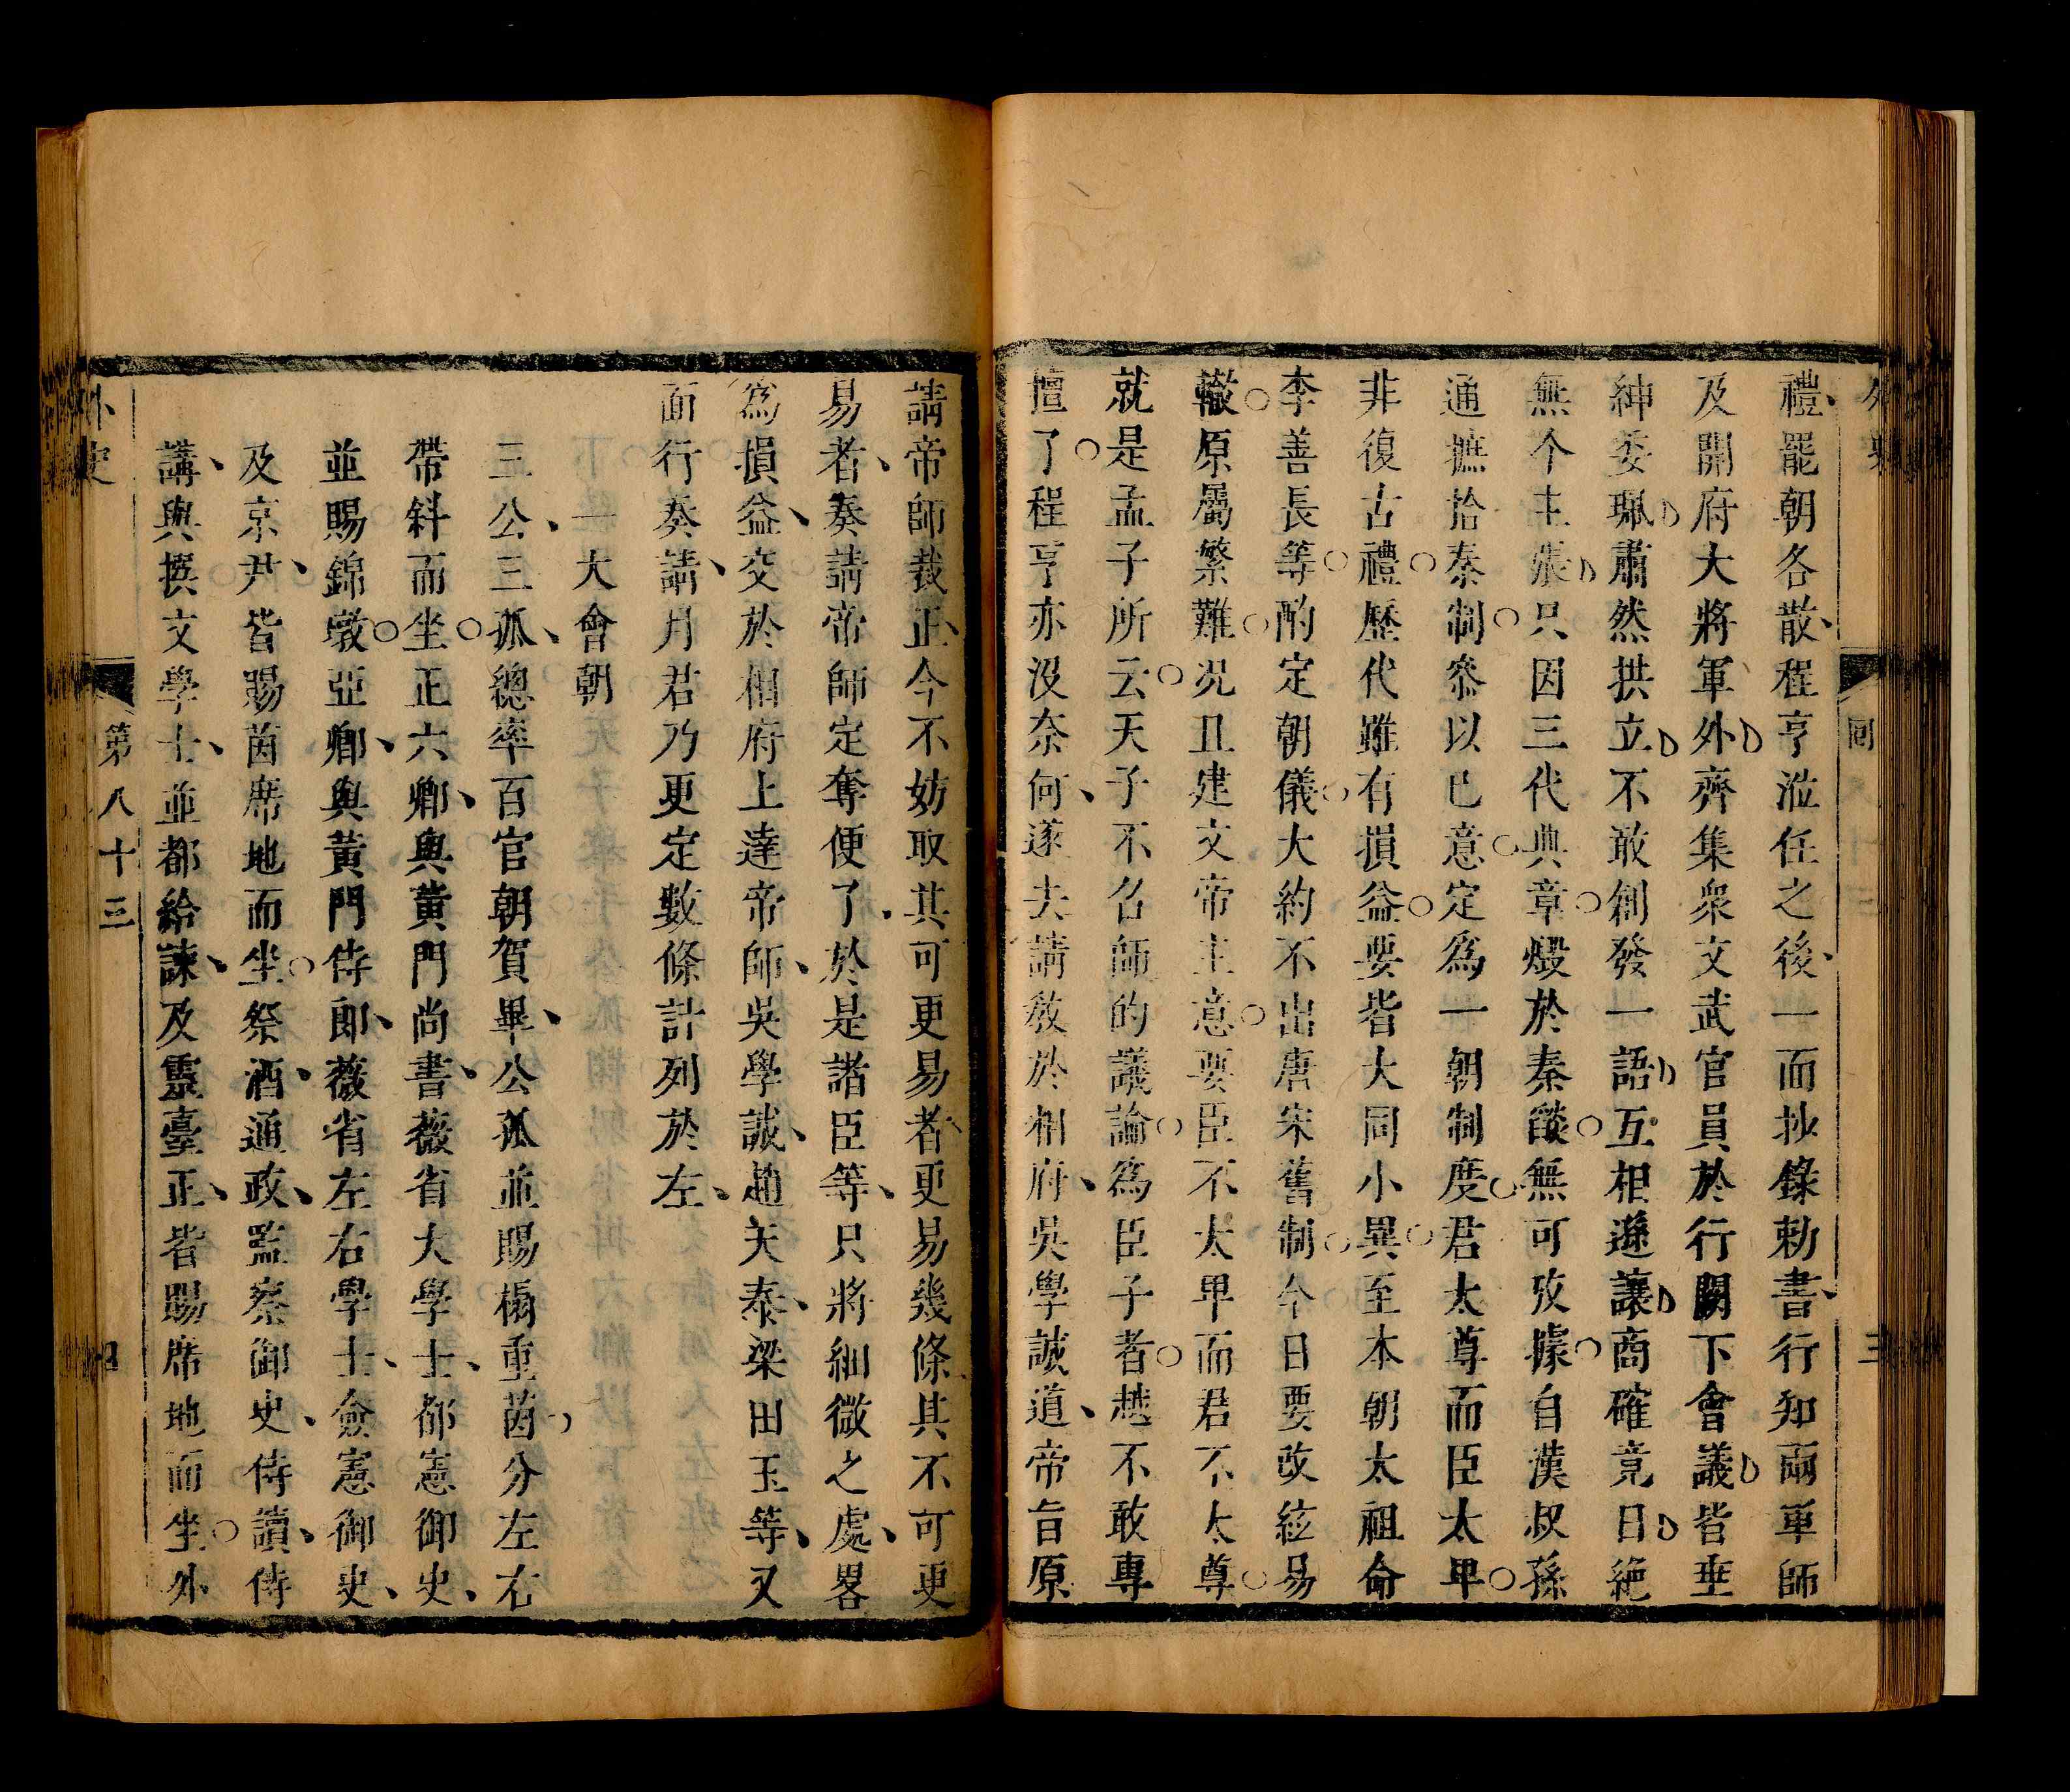 禮罷朝各散程亨涖任之後一面抄錄勅書行知兩軍師
及開府大將軍外齊集衆文武官員於行闕下會議皆垂
紳委珮肅然拱立不敢創發一語互相遜讓商確竟日絕
無个主張只因三代典章燬於秦燄無可攷據自漢叔孫
通摭拾秦制叅以已意定為一朝制度君太尊而臣太卑
非復古禮歷代雖有損益要皆大同小異至本朝太祖命
李善長等酌定朝儀大約不出唐宋舊制今日要改絃易
轍原屬繁難况且建文帝主意要臣不太卑而君不太尊
就是孟子所云天子不名師的議論為臣子者越不敢專
擅了程亨亦没奈何遂去請敎於相府吳學誠道帝旨原
請帝師裁正今不妨取其可更易者更易幾條其不可更
易者奏請帝師定奪便了於是諸臣等只將細微之處畧
為損益交於相府上達帝師吳學誠趙天泰梁田玉等又
面行奏請月君乃更定數條計列於左
一大會朝
三公三孤總率百官朝賀畢公孤並賜榻重茵分左右
帶斜而坐正六卿與黃門尚書薇省大學士都憲御史
並賜錦墩亞卿與黃門侍郎薇省左右學士僉憲御史
及京尹皆賜茵席地而坐祭酒通政監察御史侍讀侍
講與撰文學士並都給諫及靈臺正皆賜席地而坐外
外史
第八十三
四